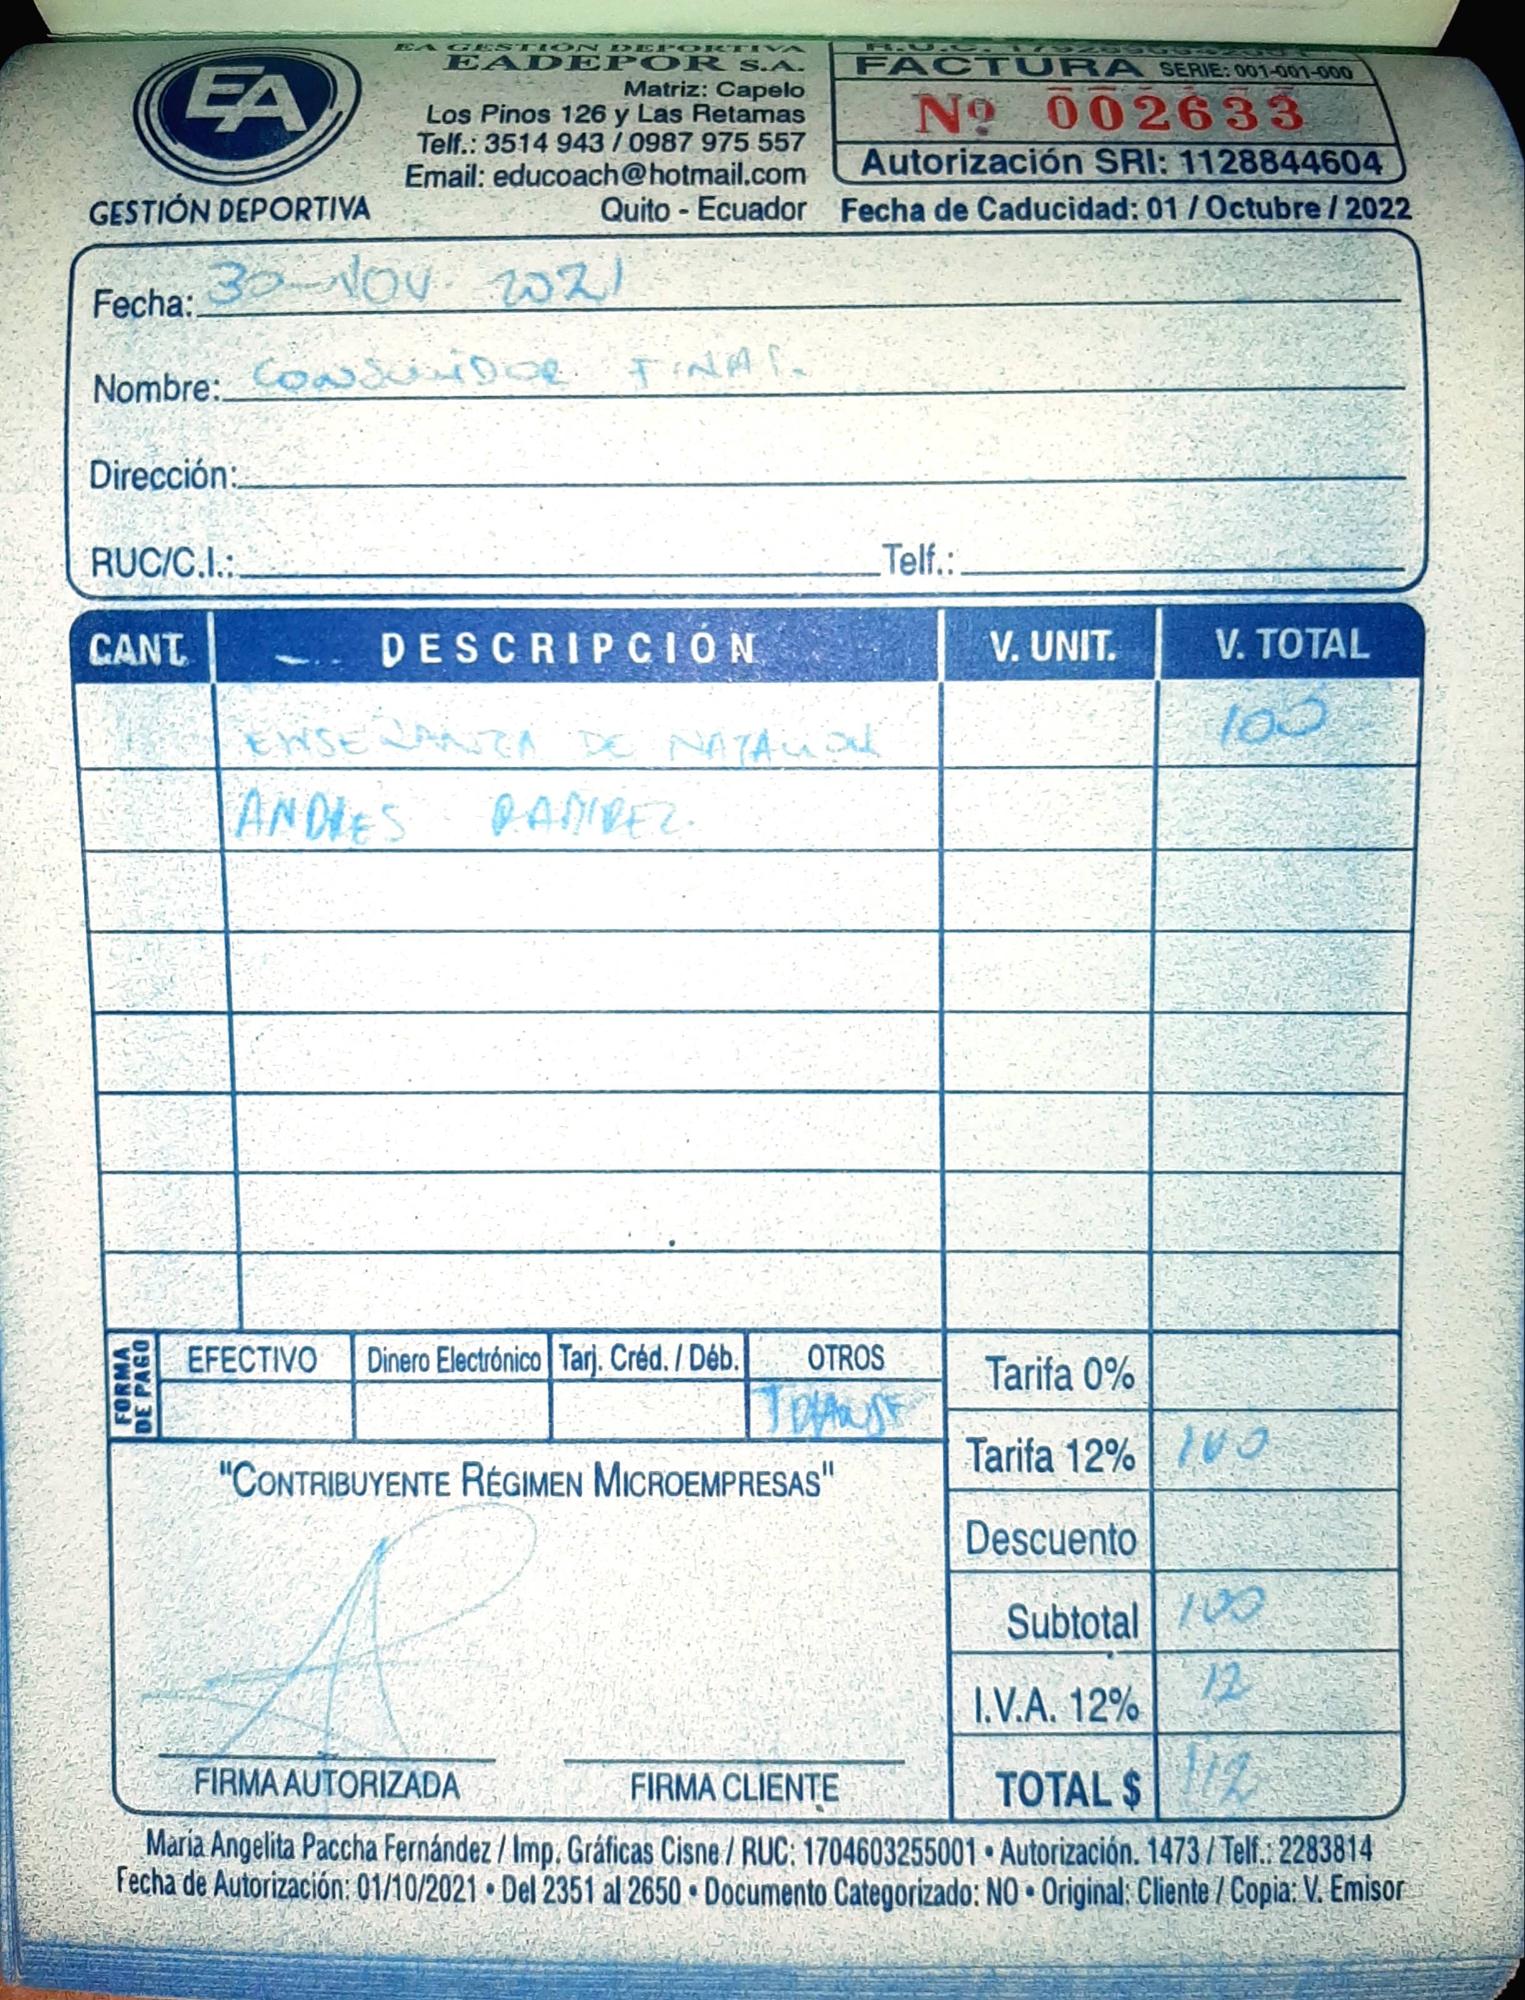 EA GESTIÓN DEPORTIVA
EADEPOR S.A.
Matriz: Capelo
Los Pinos 126 y Las Retamas
Telf.: 3514 943 / 0987 975 557
Email: educoach@hotmail.com
Quito - Ecuador
EA
GESTIÓN DEPORTIVA
R.U.C.
FACTURA SERIE: 001-001-000
Nº 002633
Autorización SRI: 1128844604
Fecha de Caducidad: 01 / Octubre / 2022
Fecha: 30-NOV. 2021
Nombre: CONSUMIDOR FINAL.
Dirección:
RUC/C.I.: Telf.:
CANT. DESCRIPCIÓN V. UNIT. V. TOTAL
ENSEÑANZA DE NATACION 100
ANDRES RAMIREZ.
FORMA DE PAGO
EFECTIVO Dinero Electrónico Tarj. Créd. / Déb. OTROS
TRANSF
Tarifa 0%
Tarifa 12% 100
Descuento
Subtotal 100
I.V.A. 12% 12
TOTAL $ 112
"CONTRIBUYENTE RÉGIMEN MICROEMPRESAS"
FIRMA AUTORIZADA FIRMA CLIENTE
María Angelita Paccha Fernández / Imp. Gráficas Cisne / RUC: 1704603255001 • Autorización. 1473 / Telf.: 2283814
Fecha de Autorización: 01/10/2021 • Del 2351 al 2650 • Documento Categorizado: NO • Original: Cliente / Copia: V. Emisor